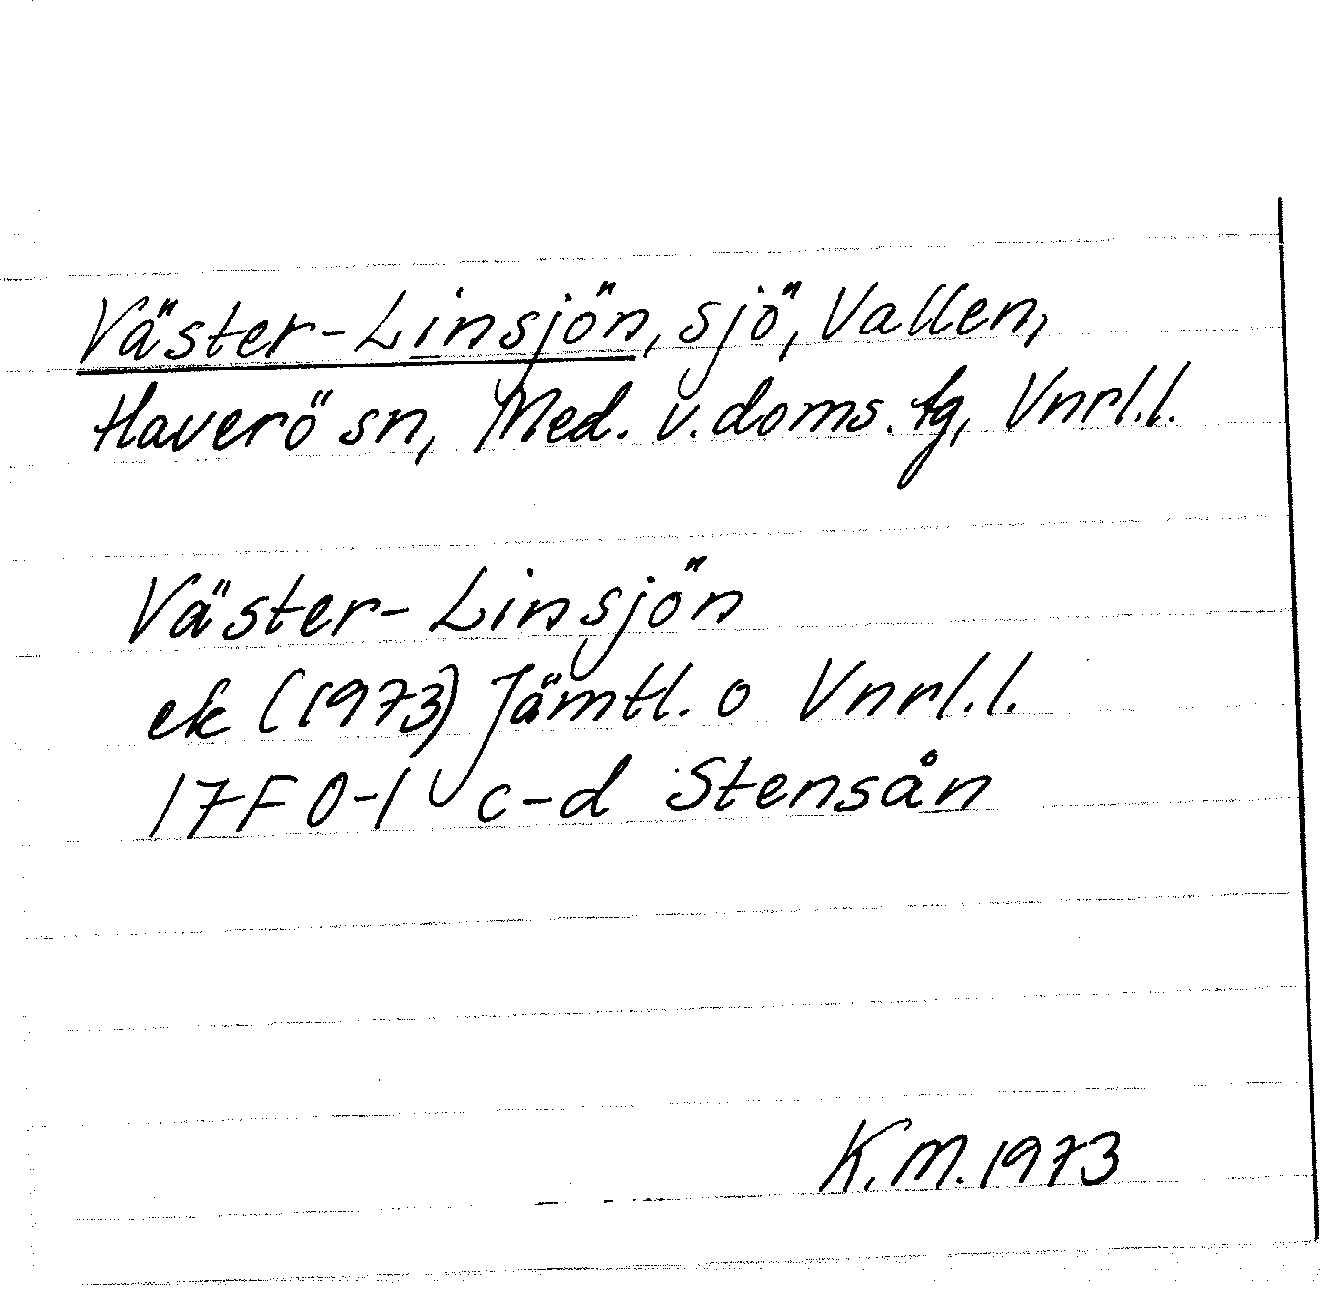 Väster-Linsjön, sjö, Vallen,
Haverö sn, Med. v. doms. tg, Vnrl.l.
Väster-Linsjön
ek (1973) Jämtl. o Vnrl.l.
17F 0-1 c-d Stensån
K.M. 1973